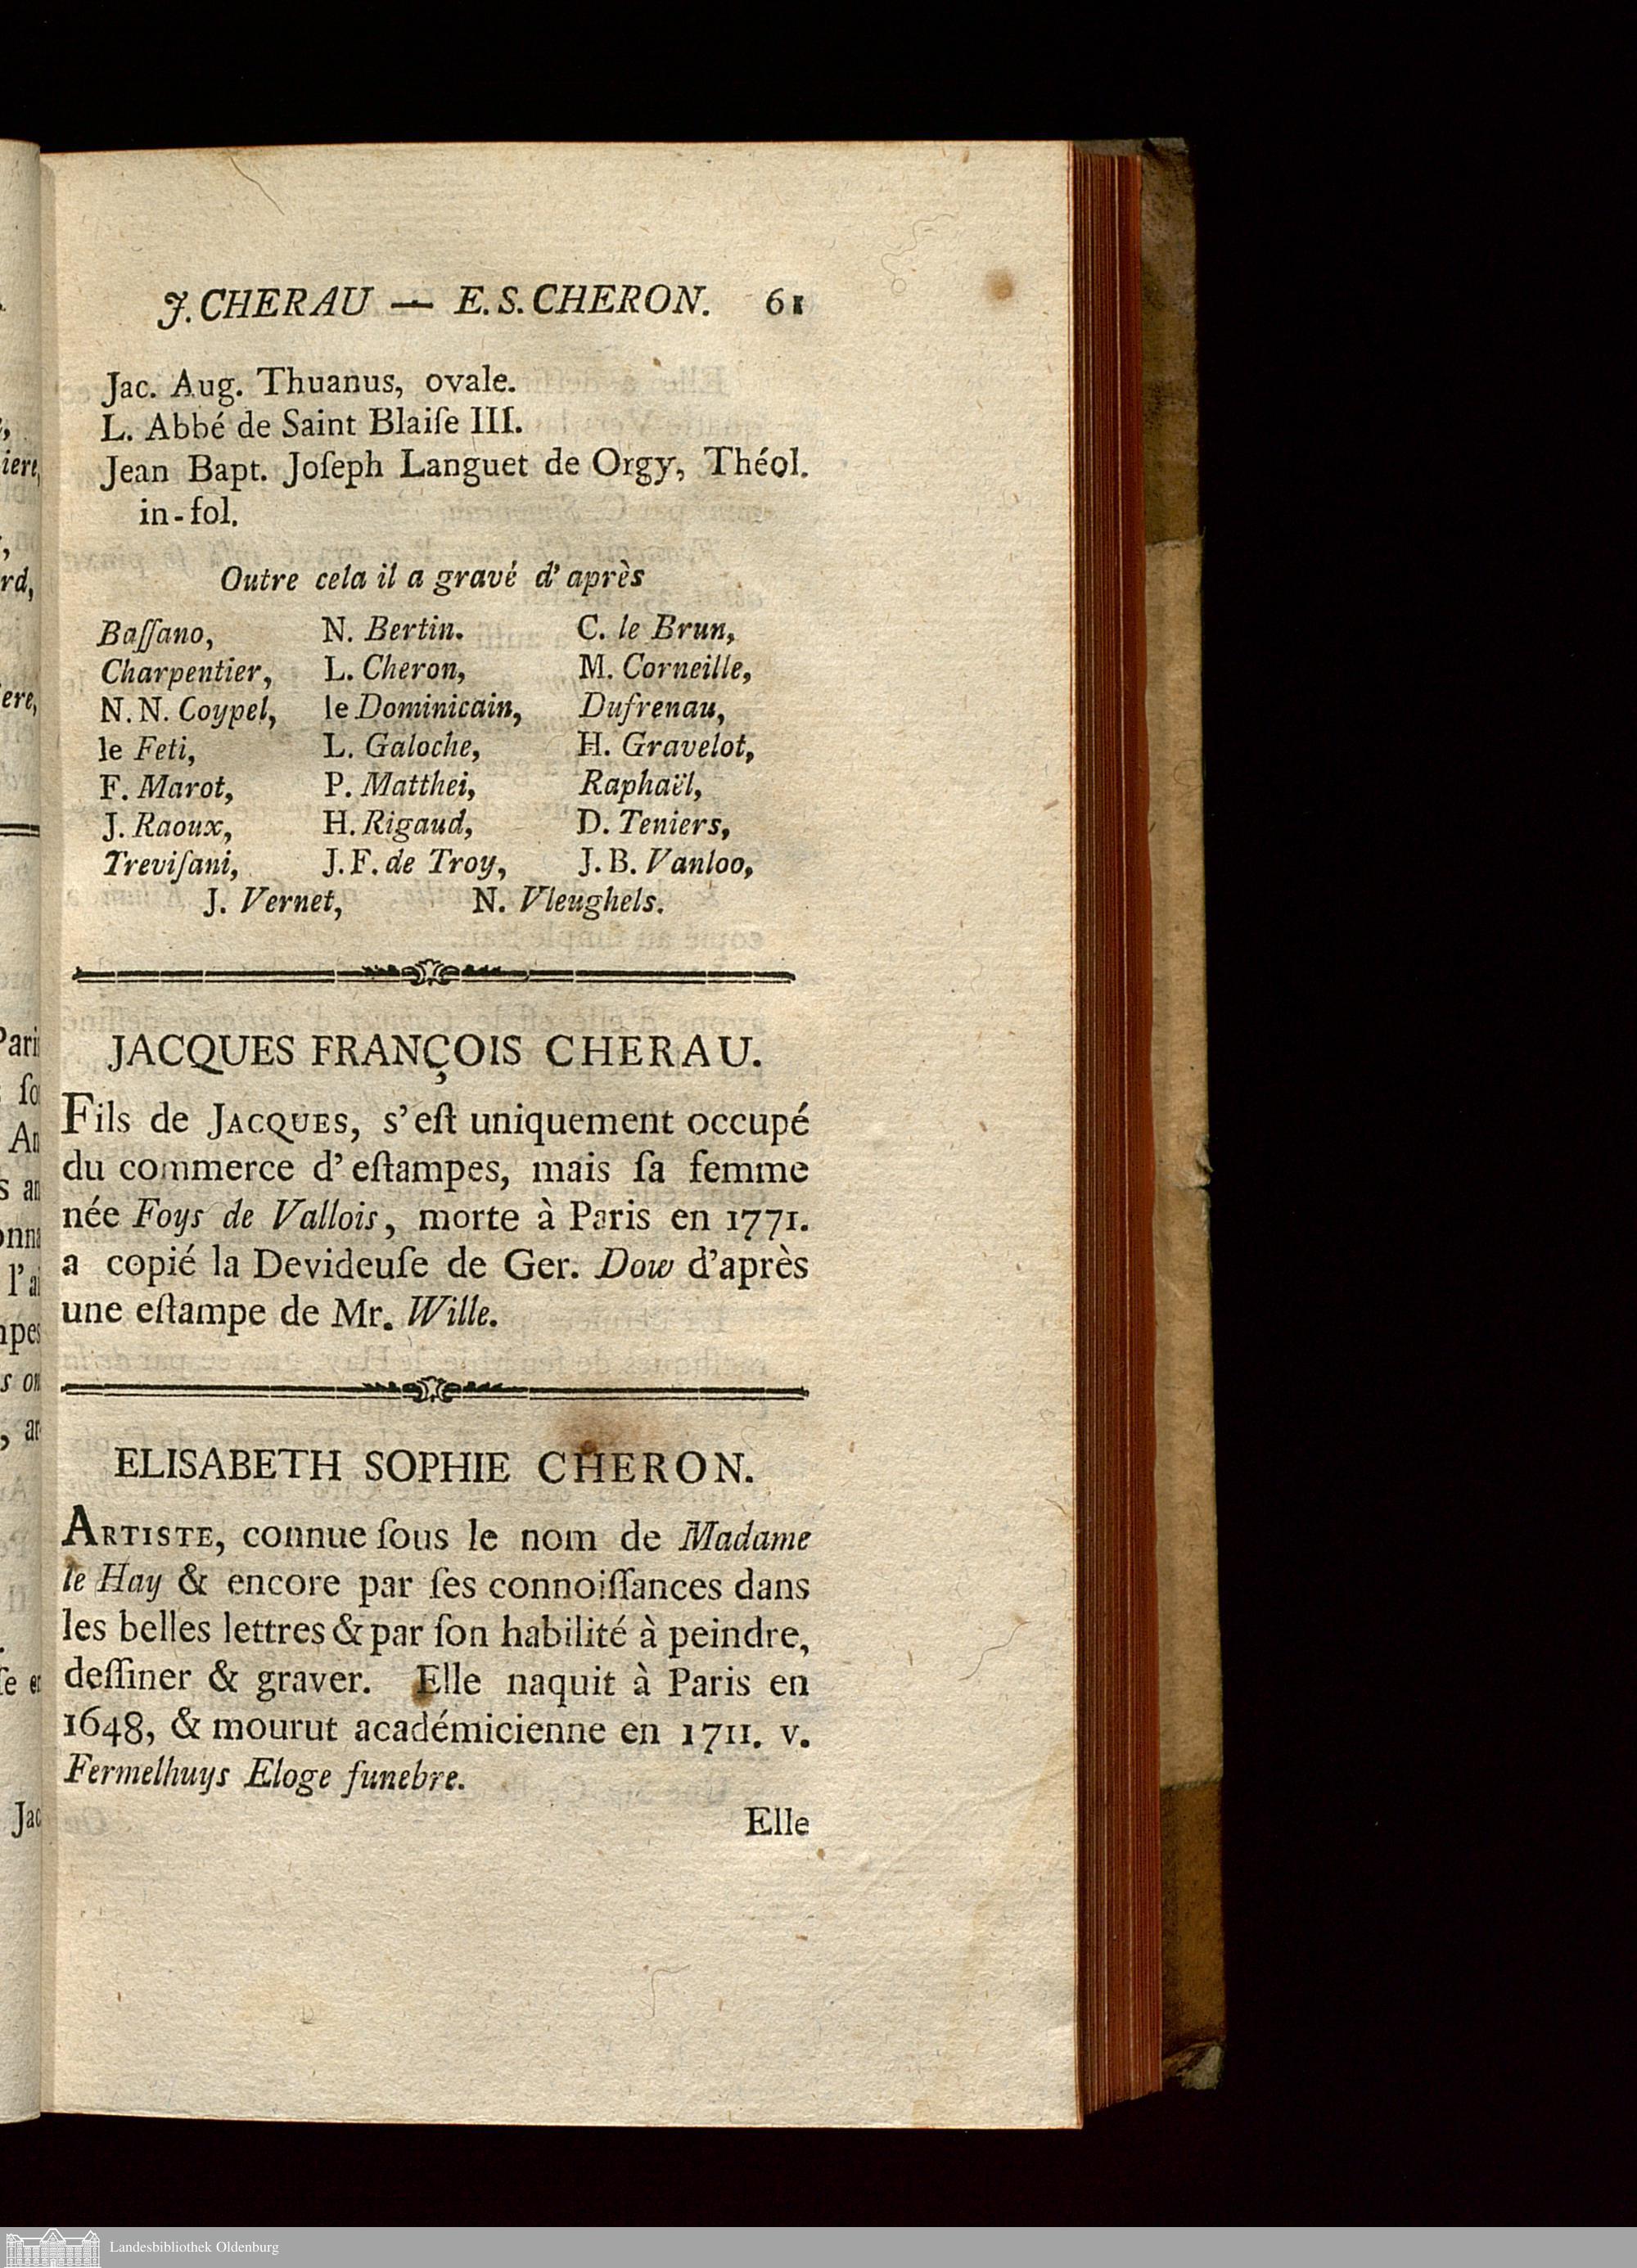 J. CHERAU — E. S. CHERON. 61
Jac. Aug. Thuanus, ovale.
L. Abbé de Saint Blaiſe III.
Jean Bapt. Joſeph Languet de Orgy, Théol.
in-fol.
Outre cela il a gravé d'après
Baſſano, N. Bertin. C. le Brun,
Charpentier, L. Cheron, M. Corneille,
N. N. Coypel, le Dominicain, Dufrenau,
le Feti, L. Galoche, H. Gravelot,
F. Marot, P. Matthei, Raphaël,
J. Raoux, H. Rigaud, D. Teniers,
Treviſani, J. F. de Troy, J. B. Vanloo,
J. Vernet, N. Vleughels.
JACQUES FRANÇOIS CHERAU.
Fils de JACQUES, s'eſt uniquement occupé
du commerce d'eſtampes, mais ſa femme
née Foys de Vallois, morte à Paris en 1771.
a copié la Devideuſe de Ger. Dow d'après
une eſtampe de Mr. Wille.
ELISABETH SOPHIE CHERON.
ARTISTE, connue ſous le nom de Madame
le Hay & encore par ſes connoiſſances dans
les belles lettres & par ſon habilité à peindre,
deſſiner & graver. Elle naquit à Paris en
1648, & mourut académicienne en 1711. v.
Fermelhuys Eloge funebre.
Elle
Landesbibliothek Oldenburg